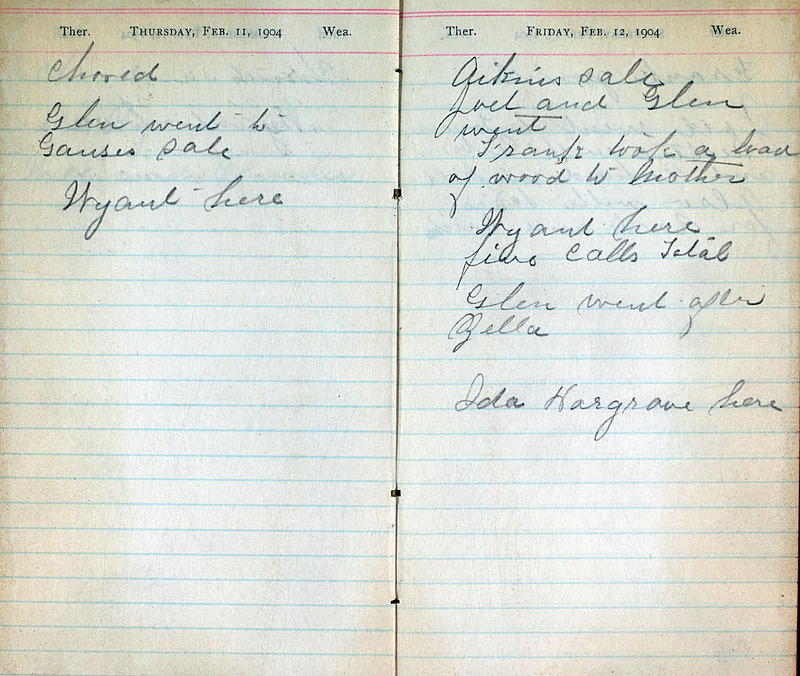 Ther. THURSDAY, FEB. 11, 1904 Wea.
Chored
Glen went to
Gauses sale
Wyant here
Ther. FRIDAY, FEB. 12, 1904 Wea.
Aikins sale
Joel and Glen
went
Frank took a load
of wood to Mother
Wyant here
five calls Total
Glen went after
Zella
Ida Hargrave here